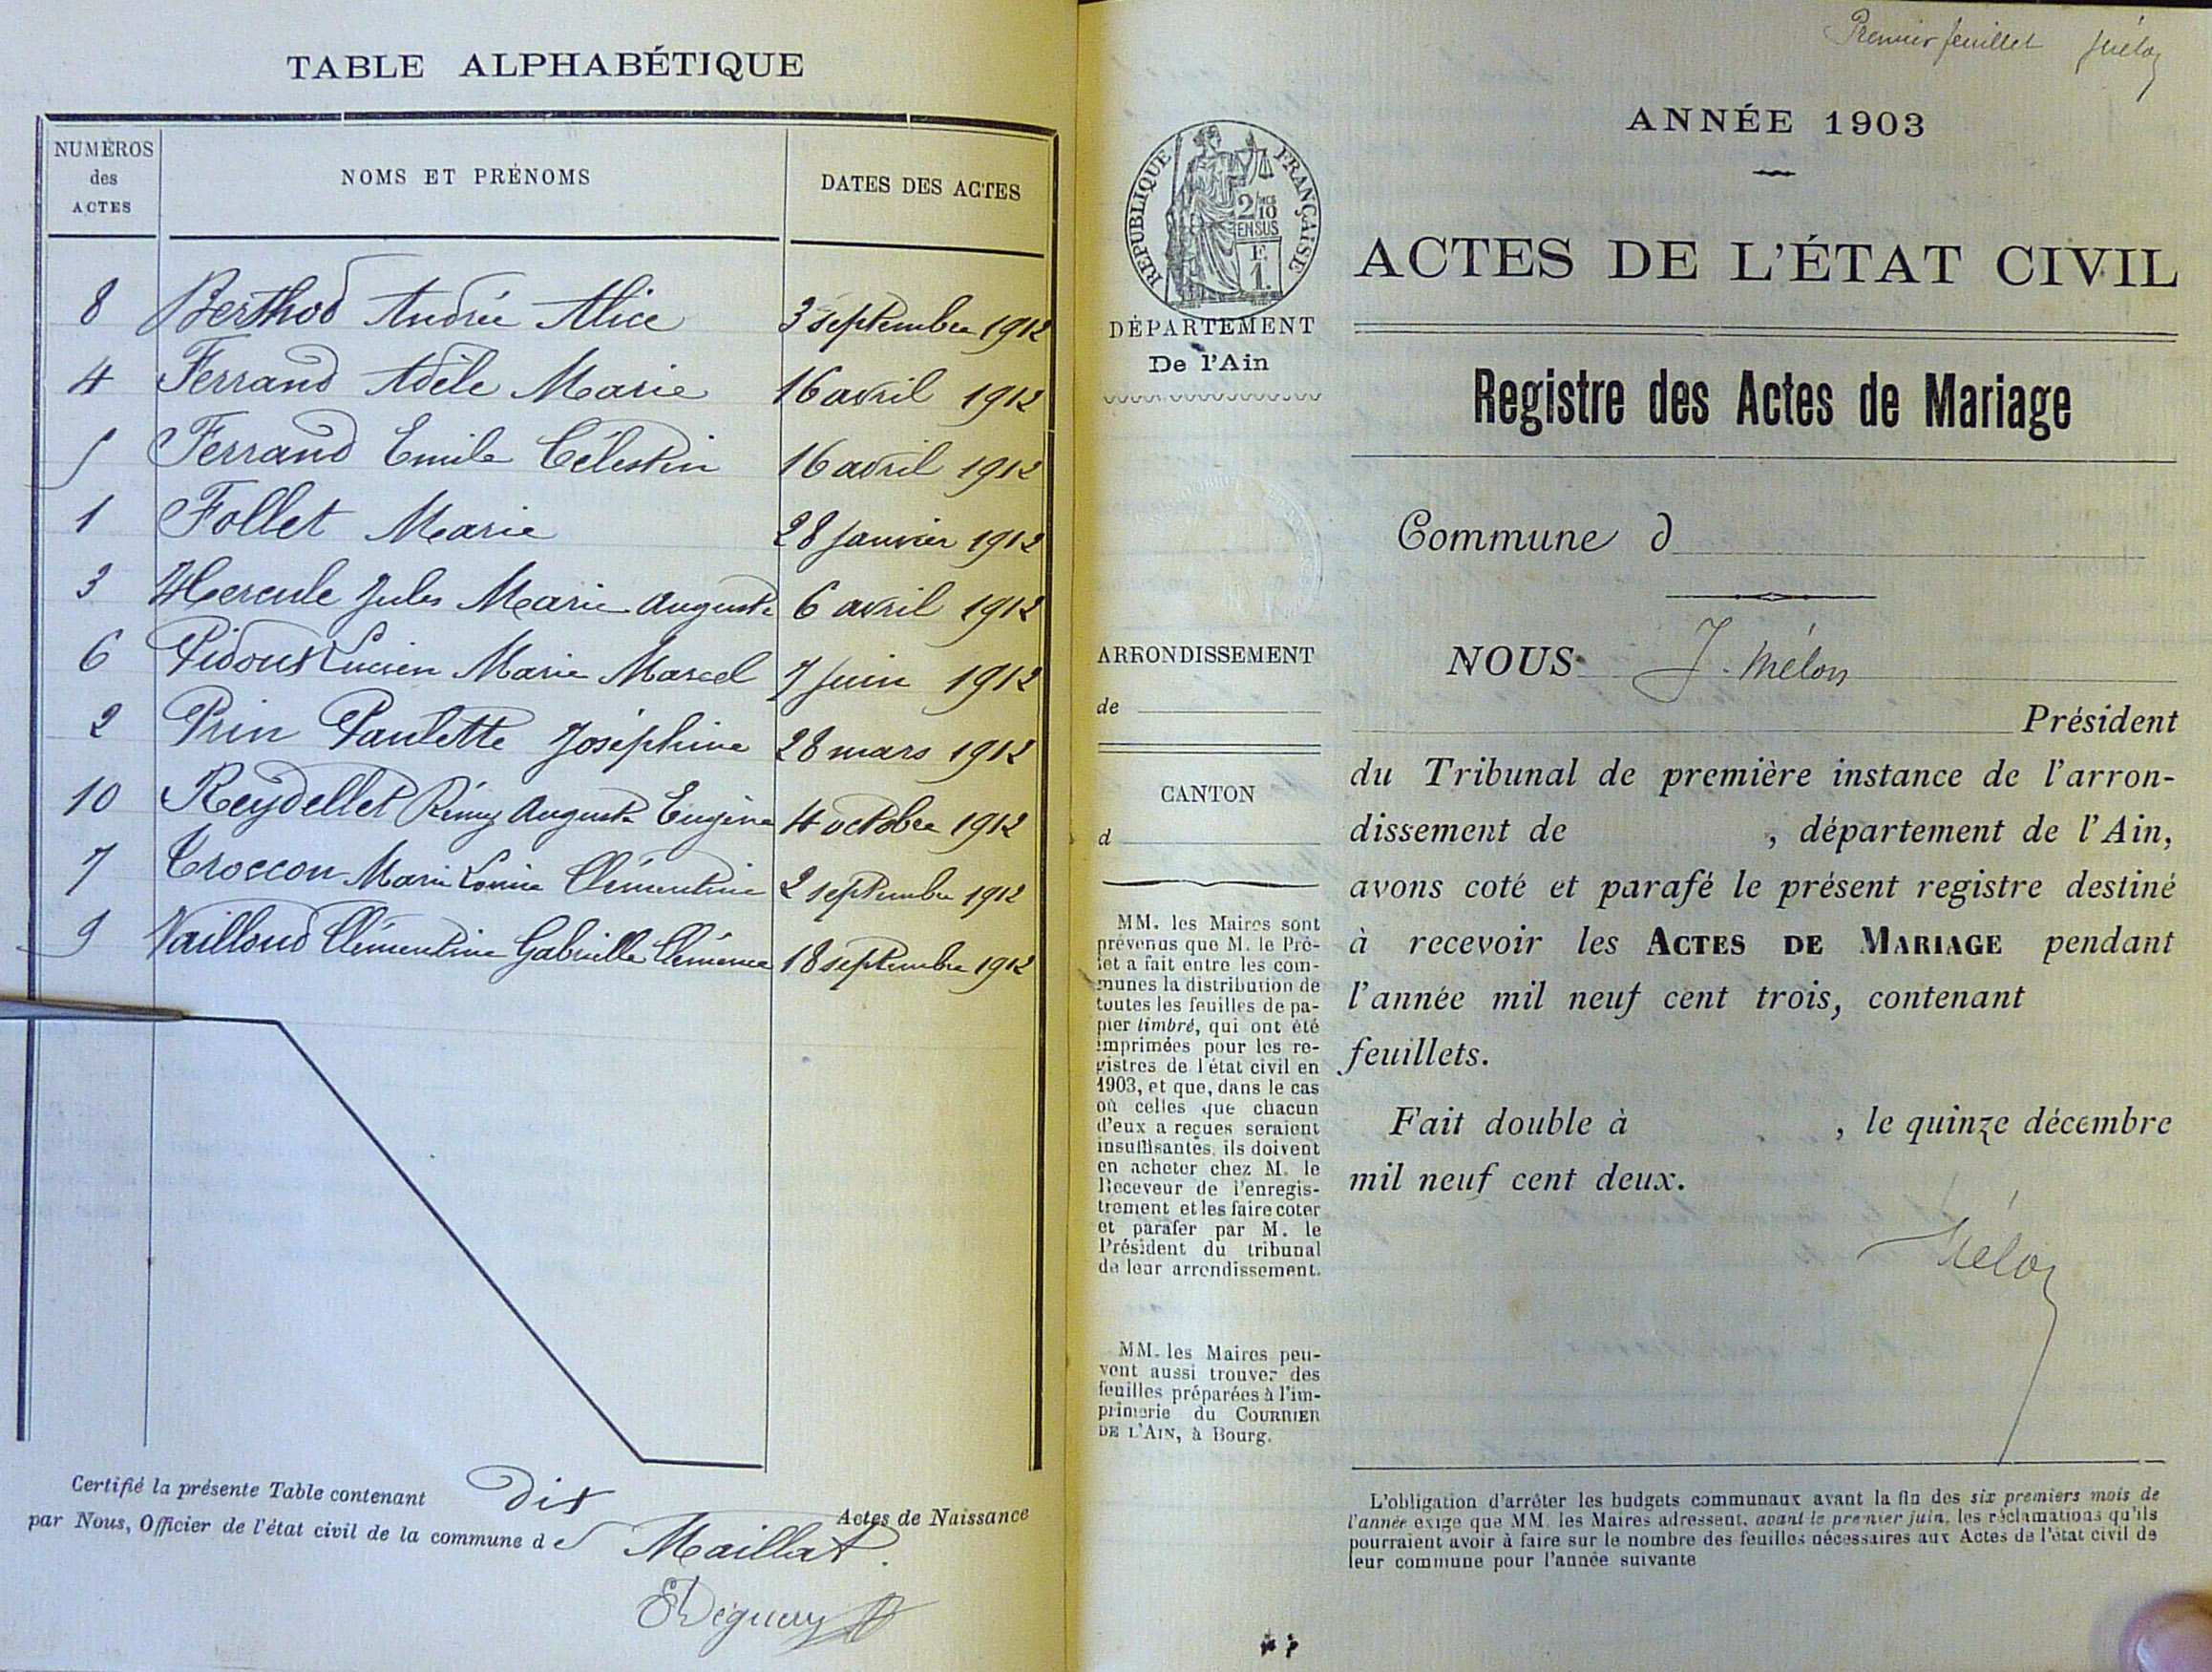 TABLE ALPHABÉTIQUE
NUMÉROS
des
ACTES
NOMS ET PRÉNOMS
DATES DES ACTES
8 Berthod Andrée Alice 3 septembre 1912
4 Ferrand Adèle Marie 16 avril 1912
5 Ferrand Emile Célestin 16 avril 1912
1 Follet Marie 28 janvier 1912
3 Hercule Jules Marie Auguste 6 avril 1912
6 Pidoux Lucien Marie Marcel 7 juin 1912
2 Prin Paulette Joséphine 28 mars 1912
10 Reydellet Rémy Auguste Eugène 4 octobre 1912
7 Troccon Marie Louise Clémentine 2 septembre 1912
9 Vailloud Clémentine Gabrielle Clémence 18 septembre 1912
Certifié la présente Table contenant dix Actes de Naissance
par Nous, Officier de l'état civil de la commune de Maillat.
Premier feuillet Mélon
ANNÉE 1903
RÉPUBLIQUE FRANÇAISE
2/10
EN SUS
F.
1.
DÉPARTEMENT
De l'Ain
ARRONDISSEMENT
de
CANTON
d
MM. les Maires sont
prévenus que M. le Pré-
fet a fait entre les com-
munes la distribution de
toutes les feuilles de pa-
pier timbré, qui ont été
imprimées pour les re-
gistres de l'état civil en
1903, et que, dans le cas
où celles que chacun
d'eux a reçues seraient
insuffisantes, ils doivent
en acheter chez M. le
Receveur de l'enregis-
trement et les faire coter
et parafer par M. le
Président du tribunal
de leur arrondissement.
MM. les Maires peu-
vent aussi trouver des
feuilles préparées à l'im-
primerie du COURRIER
DE L'AIN, à Bourg.
ACTES DE L'ÉTAT CIVIL
Registre des Actes de Mariage
Commune d
NOUS J. Mélon
Président
du Tribunal de première instance de l'arron-
dissement de , département de l'Ain,
avons coté et parafé le présent registre destiné
à recevoir les ACTES DE MARIAGE pendant
l'année mil neuf cent trois, contenant
feuillets.
Fait double à , le quinze décembre
mil neuf cent deux.
Mélon
L'obligation d'arrêter les budgets communaux avant la fin des six premiers mois de
l'année exige que MM. les Maires adressent, avant le premier juin, les réclamations qu'ils
pourraient avoir à faire sur le nombre des feuilles nécessaires aux Actes de l'état civil de
leur commune pour l'année suivante